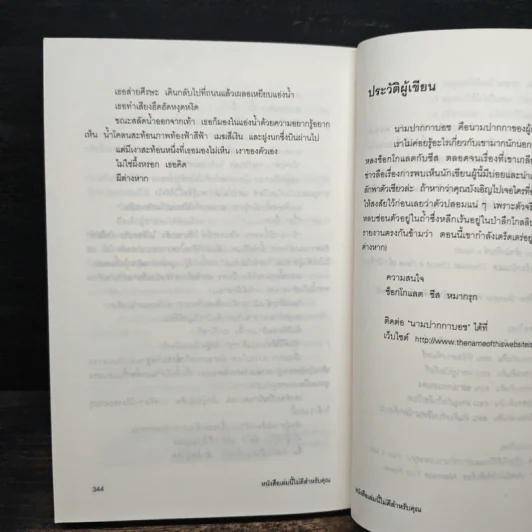 เธอส่ายศีรษะ เดินกลับไปที่ถนนแล้วเผลอเหยียบแอ่งน้ำ
เธอทำเสียงฮึดฮัดหงุดหงิด
ขณะสลัดน้ำออกจากเท้า เธอก็มองในแอ่งน้ำด้วยความอยากรู้อยาก
เห็น น้ำโคลนสะท้อนภาพท้องฟ้าสีฟ้า เมฆสีเงิน และฝูงนกซึ่งบินผ่านไป
แต่มีเงาสะท้อนหนึ่งที่เธอมองไม่เห็น เงาของตัวเอง
ไม่ใช่ผีหรอก เธอคิด
ผีต่างหาก
344
หนังสือเล่มนี้ไม่ดีสำหรับคุณ
ประวัติผู้เขียน
นามปากกาบอช คือนามปากกาของผู้
เราไม่ค่อยรู้อะไรเกี่ยวกับเขามากนักนอก
หลงช็อกโกแลตกับชีส ตลอดจนเรื่องที่เขาเกลีย
ข่าวลือเรื่องการพบเห็นนักเขียนผู้นี้มีบ่อยและน่า
ลักพาตัวเชียวล่ะ ถ้าหากว่าคุณบังเอิญไปเจอใครที่
ให้สงสัยไว้ก่อนเลยว่าตัวปลอมแน่ ๆ เพราะตัวจริ
หลบซ่อนตัวอยู่ในถ้ำซึ่งหลีกเร้นอยู่ในป่าลึกไกลลิบ
รายงานตรงกันข้ามว่า ตอนนี้เขากำลังเตร็ดเตร่อยู่
ต่างหาก)
ความสนใจ
ช็อกโกแลต ชีส หมากรุก
ติดต่อ "นามปากกาบอช" ได้ที่
เว็บไซต์ http://www.thenameofthiswebsiteis
หนังสือเล่มนี้ไม่ดีสำหรับคุณ